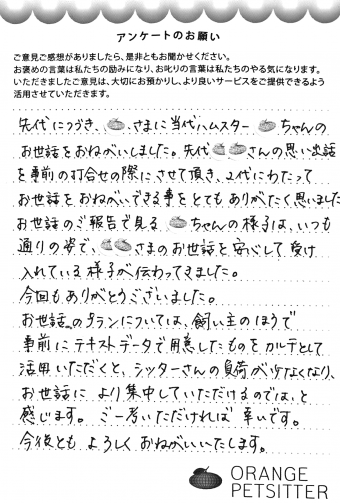 アンケートのお願い
ご意見ご感想がありましたら、是非ともお聞かせください。
お褒めの言葉は私たちの励みになり、お叱りの言葉は私たちのやる気になります。
いただきましたご意見は、大切にお預かりし、より良いサービスをご提供できるよう
活用させていただきます。
先代につづき、さまに当代ハムスターちゃんの
お世話をおねがいしました。先代さんの思い出話
を事前の打合せの際にさせて頂き、2代にわたって
お世話をおねがいできる事をとてもありがたく思いました
お世話のご報告で見るちゃんの様子は、いつも
通りの姿で、さまのお世話を安心して受け
入れている様子が伝わってきました。
今回もありがとうございました。
お世話のプランについては、飼い主のほうで
事前にテキストデータで用意したものをカルテとして
活用いただくと、シッターさんの負荷が少なくなり、
お世話により集中していただけるのでは、と
感じます。ご一考いただければ幸いです。
今後ともよろしくおねがいいたします。
ORANGE
PETSITTER